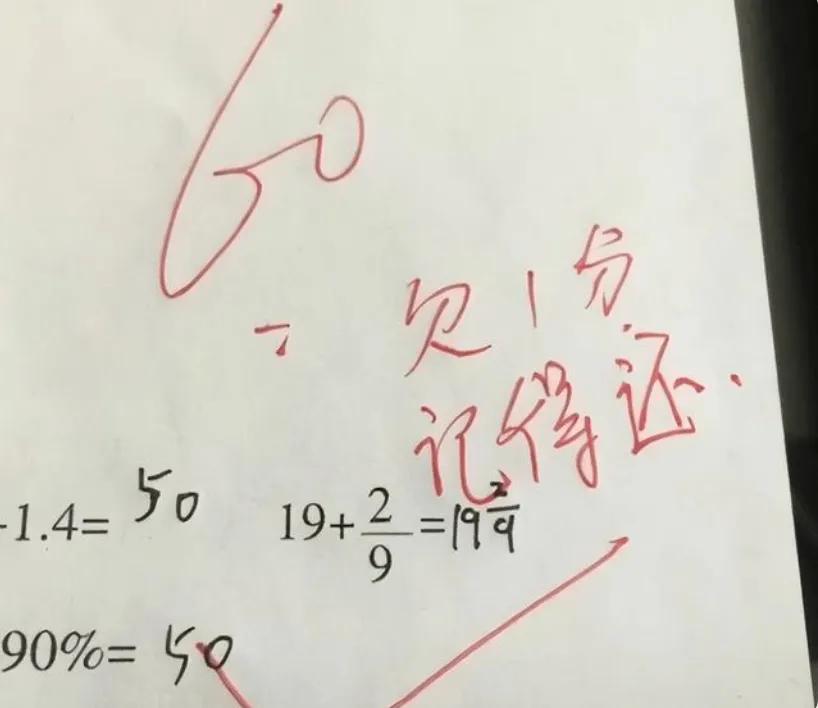 60
欠1分
记得还.
-1.4= 50 19+2/9=19 2/9
90%= 50